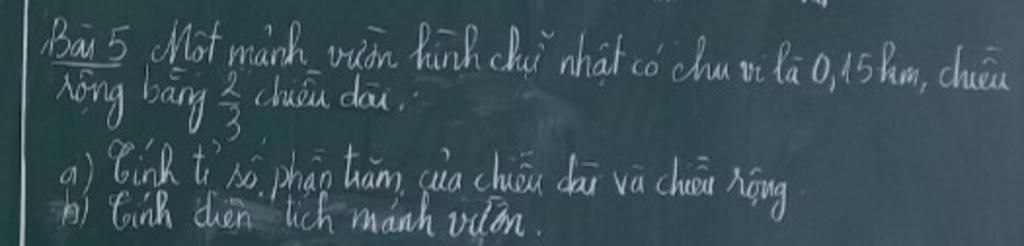 Bài 5 Một mảnh vườn hình chữ nhật có chu vi là 0,15km, chiều
rộng bằng 2/3 chiều dài.
a) Tính tỉ số phần trăm của chiều dài và chiều rộng.
b) Tính diện tích mảnh vườn.